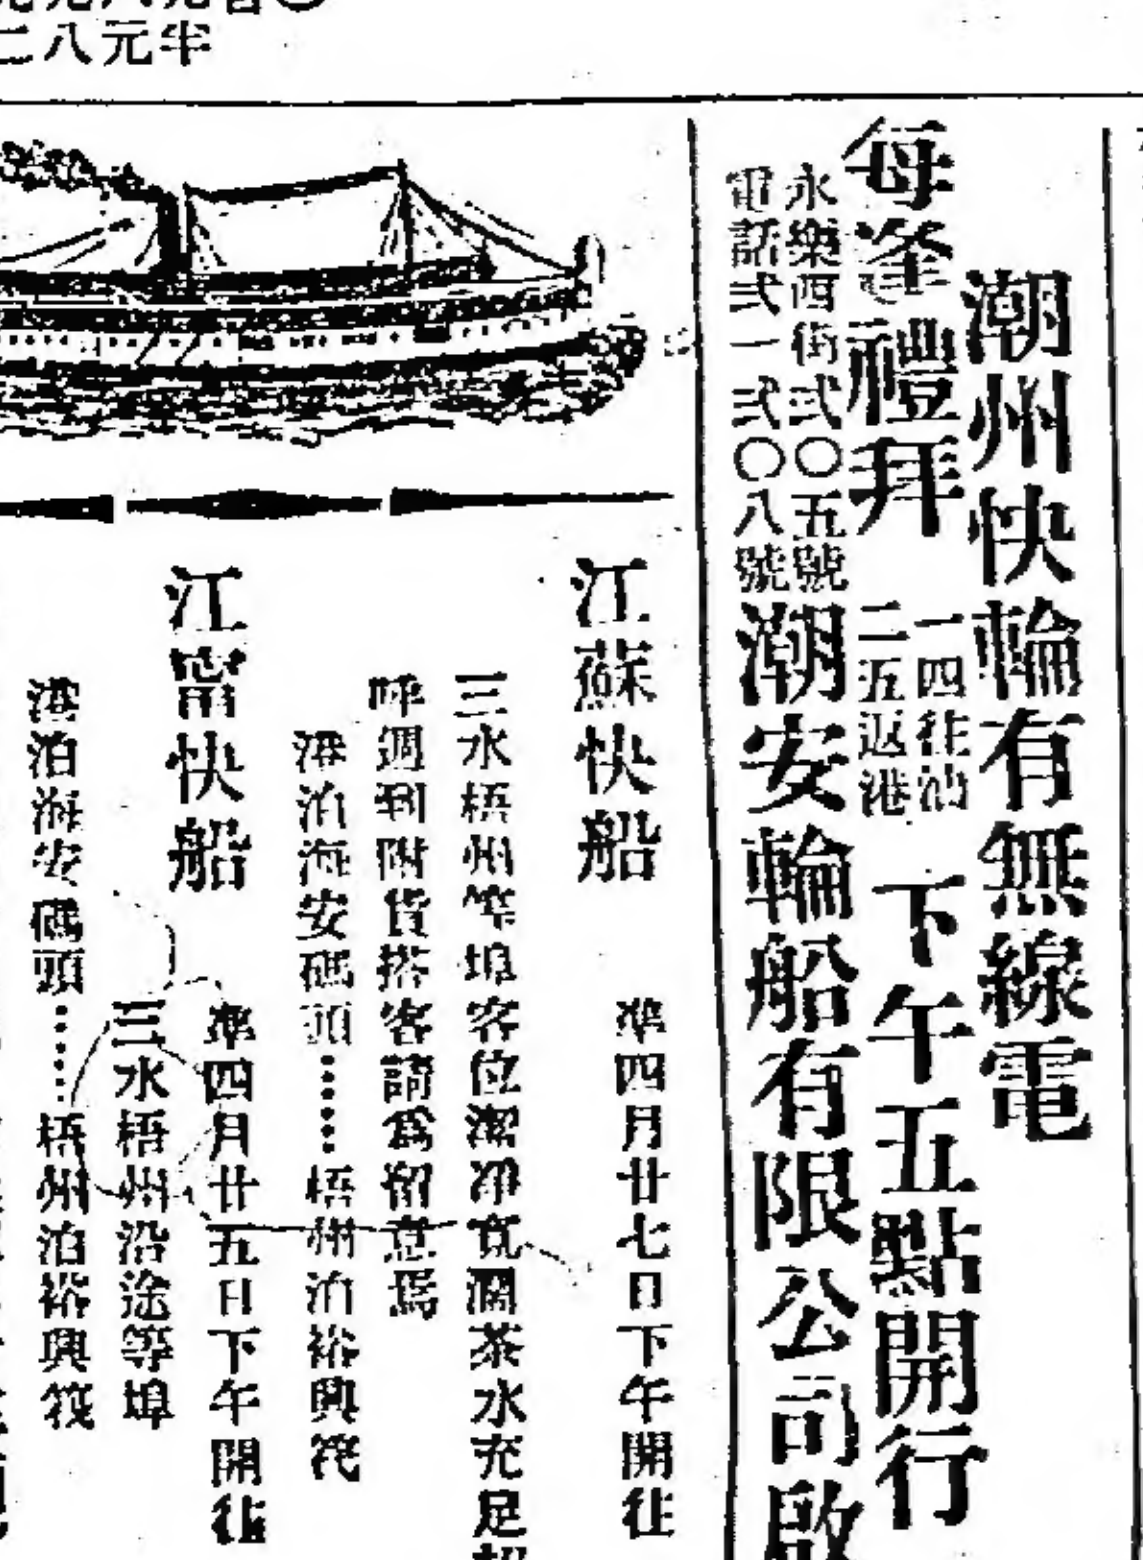 二八元半
潮州快輪有無線電
每逢禮拜
一四往汕
二五返港
下午五點開行
永樂西街弍〇五號
電話弍一弍〇八號
潮安輪船有限公司啟
江蘇快船
準四月廿七日下午開往
三水梧州等埠客位潔淨寬濶茶水充足招
呼週到附貨搭客請爲留意焉
港泊海安碼頭……梧州泊裕興筏
江甯快船
準四月廿五日下午開往
三水梧州沿途等埠
港泊海安碼頭……梧州泊裕興筏